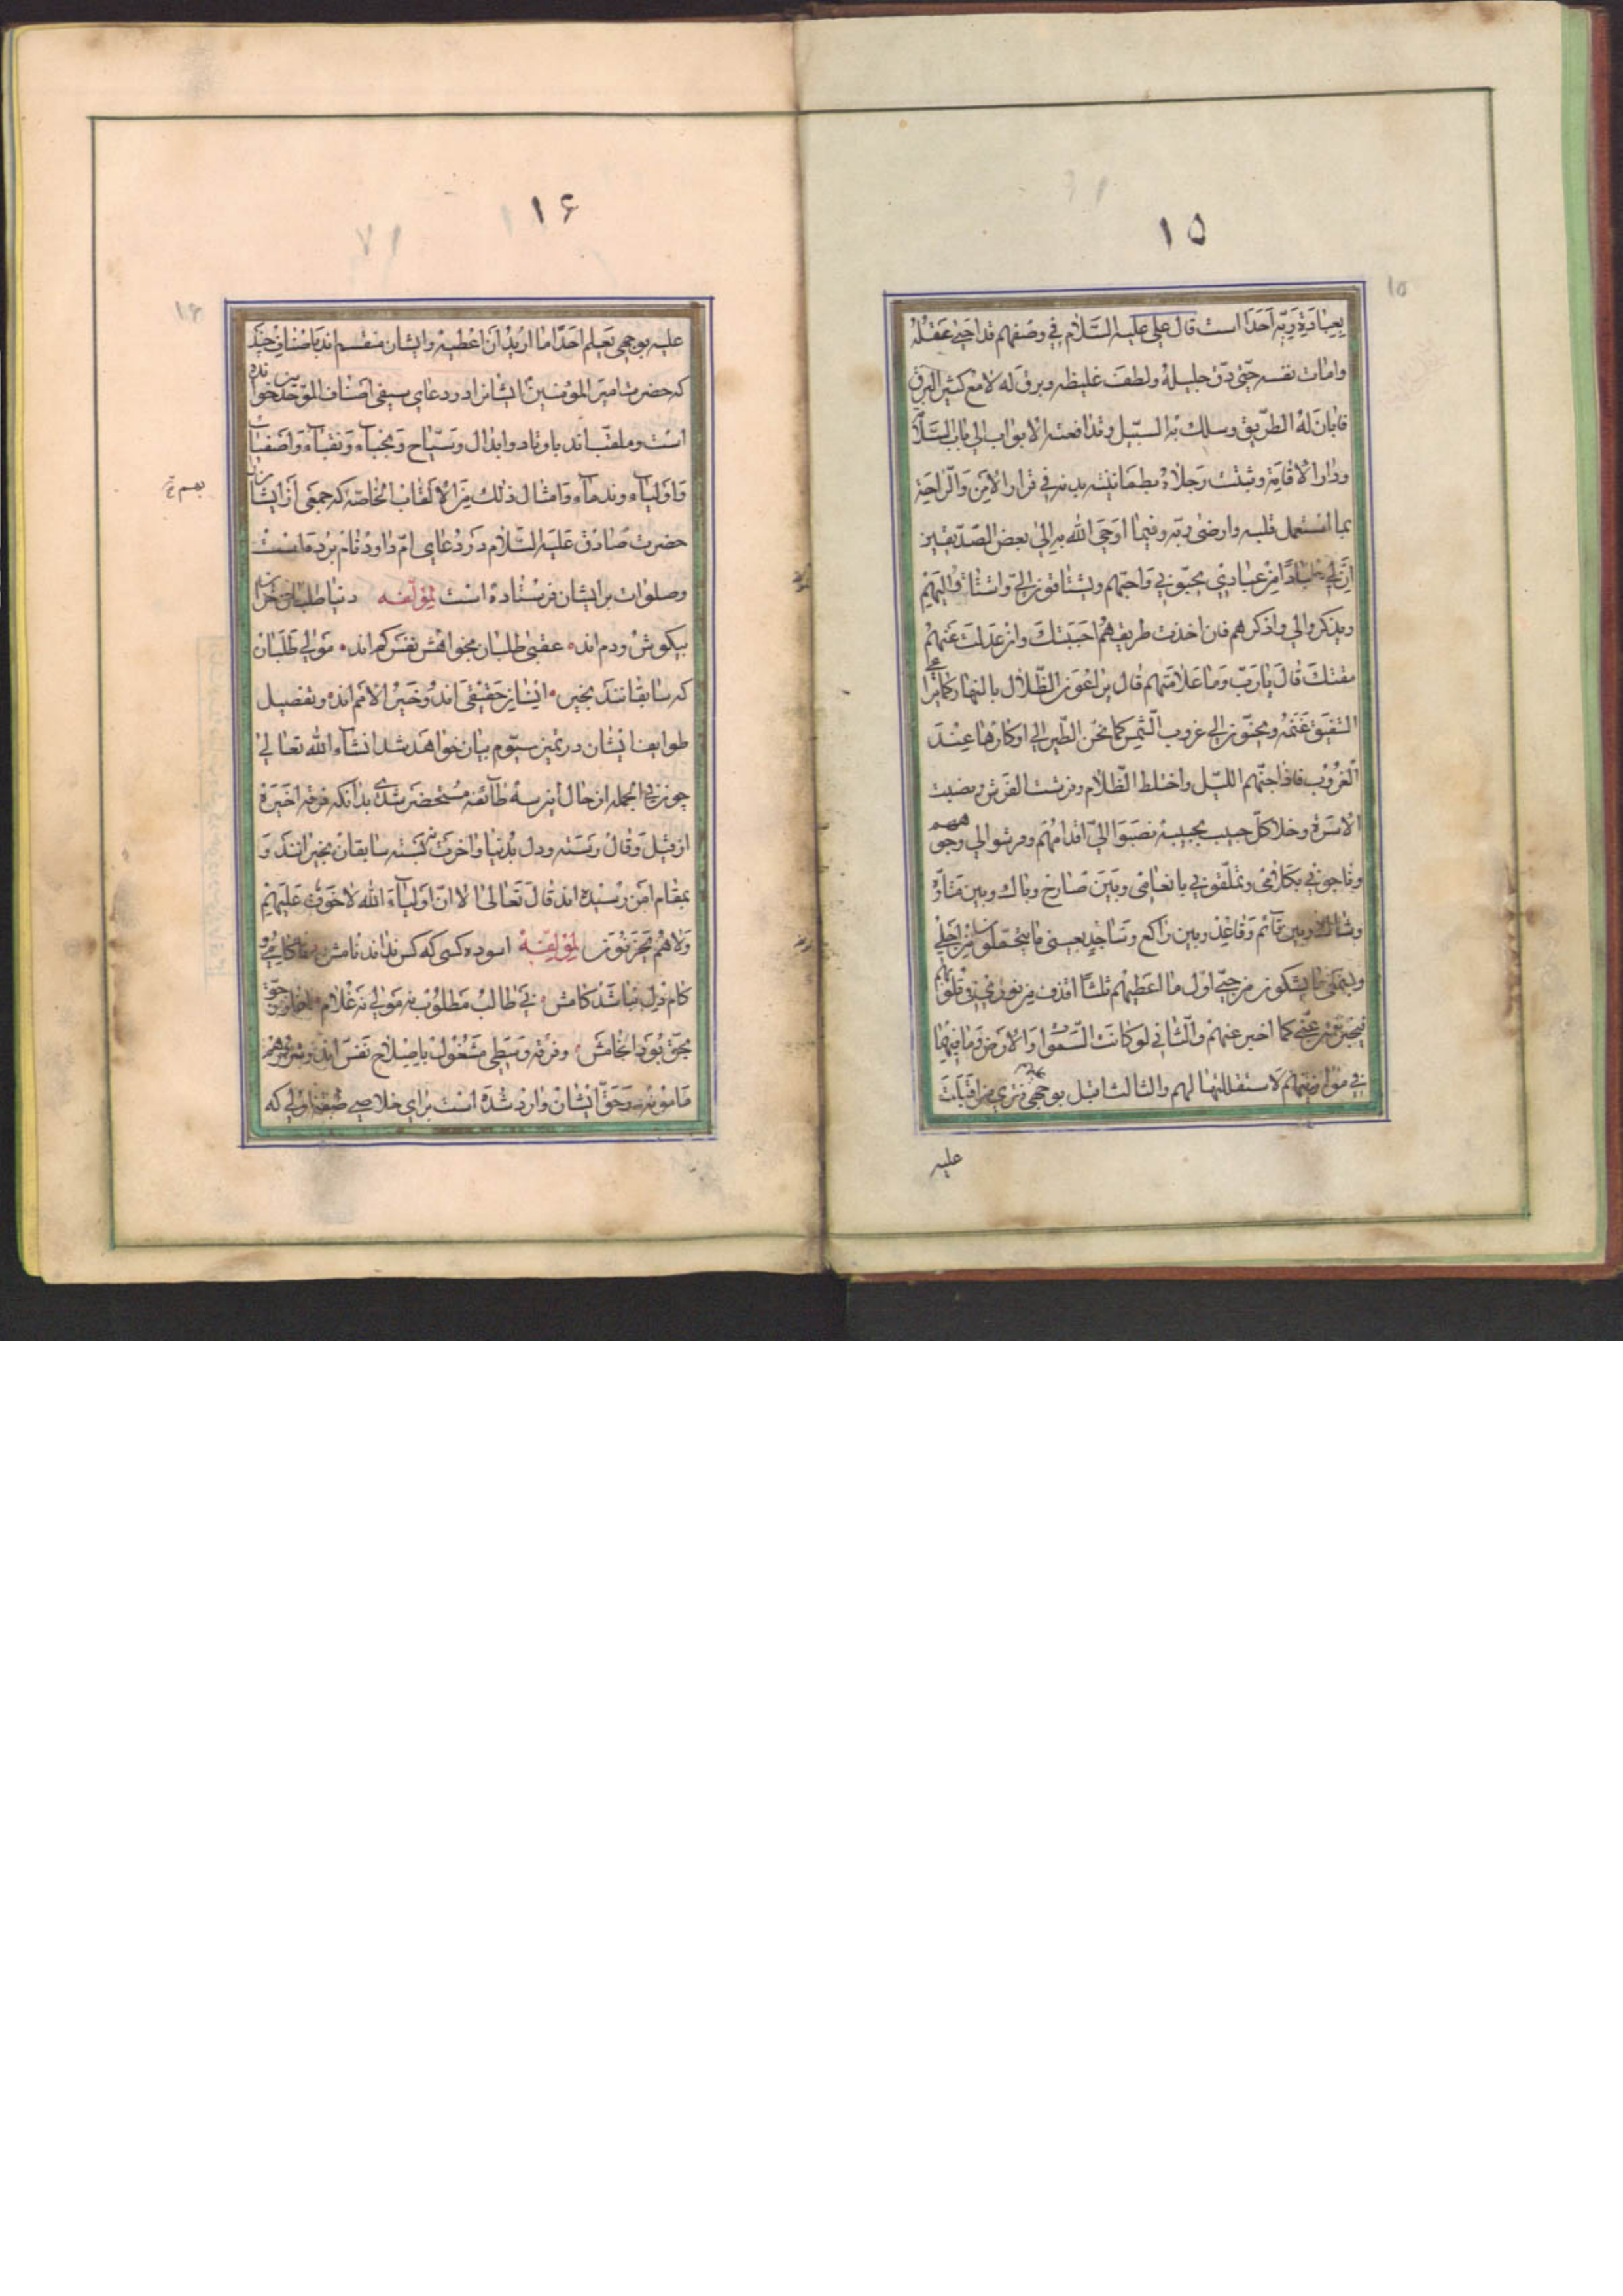 ۱۵
۱۵
بعبادة ربّه احدا است قال علی علیه السّلام فی وصفهم قد احیی عقله
وامات نفسه حتّی دقّ جلیله ولطف غلیظه وبرق له لامع کثیر البرق
فابان له الطّریق وسلك به السّبیل وتدافعته الابواب الی باب السّلامة
ودار الاقامة وثبتت رجلاه بطمأنینة بدنه فی قرار الامن والرّاحة
بما استعمل قلبه وارضی ربّه وفیما اوحی الله به الی بعض الصّدّیقین
انّ لی عبادا من عبادی یحبّونی واحبّهم ویشتاقون الیّ واشتاق الیهم
ویذکرونی واذکرهم فان اخذت طریقهم احببتك وان عدلت عنهم
مقتك قال یا ربّ وما علامتهم قال یراعون الظّلال بالنهار کما یراعی
الشفیق غنمه ویحنّون الی غروب الشّمس کما تحنّ الطّیر الی اوکارها عند
الغروب فاذا جنّهم اللیل واختلط الظّلام وفرشت الفرش ونصبت
الاسرّة وخلا کلّ حبیب بحبیبه نصبوا الیّ اقدامهم وفرشوا لی وجوههم
وناجونی بکلامی وتملّقونی بانعامی وبین صارخ وباك وبین متأوّه
وشاك وبین قائم وقاعد وبین راکع وساجد بعینی ما یتحمّلون من اجلی
وبسمعی ما یشکون من حبّی اول ما اعطیهم ثلثا اقذف من نوری فی قلوبهم
فیخبرون عنّی کما اخبر عنهم والثانی لو کانت السّموات والارض وما فیهما
فی موازینهم لاستقللتها لهم والثالث اقبل بوجهی علیهم فتری من اقبلت
علیه
۱۶
۱۶
علیه بوجهی یعلم احد ما ارید ان اعطیه وایشان منقسم اند باصناف چند
که حضرت امیر المؤمنین ایشانرا در دعای سیفی اصناف الموحّدین خوانده
است وملقّب اند باوتاد وابدال وسیّاح ونجباء ونقباء واصفیاء
واولیاء وندماء وامثال ذلك من الالقاب الخاصّه که جمعی از ایشانرا
حضرت صادق علیه السّلام در دعای امّ داود نام برده است
وصلوات بر ایشان فرستاده است لمؤلّفه دنیا طلبان
بکوش ودم اند عقبی طلبان بخواهش نفس کم اند مولی طلبان
که سابقانند بخیر ایشان حقیقی اند وخیر الامم اند وتفصیل
طوایف ایشان در تمیز سیّوم بیان خواهد شد انشاء الله تعالی
چون فی الجمله از حال این سه طائفه مستحضر شدی بدانکه فرقه اخیره
از قیل وقال رسته ودل بدنیا واخرت نبسته سابقان بخیراتند و
بمقام امن رسیده اند قال تعالی الا انّ اولیاء الله لا خوف علیهم
ولا هم یحزنون لمؤلّفه اسوده کسی که کس نداند نامش
کام دل نباشد کامش نی طالب مطلوب نه مولی نه غلام
بحقّ بود انجامش وفرقه وسطی مشغول باصلاح نفس اند
مامونند وحقّ ایشان وارد شده است برای خلاصی طبقه اولی که